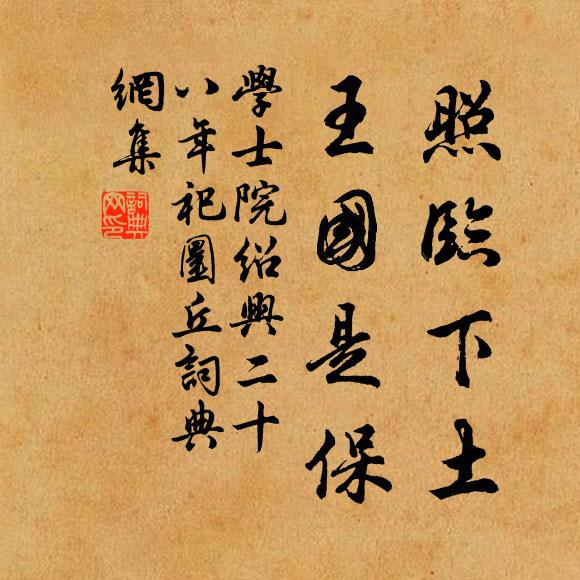 照臨下土
王國是保
學士院紹興二十
八年祀圜丘詞典
網集
詞典
網印